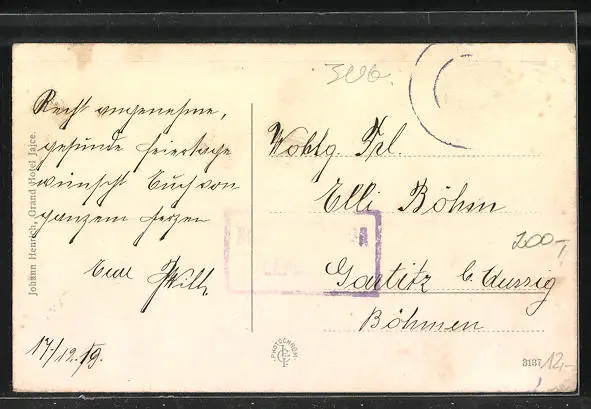 Recht angenehme,
gesunde Feiertage
wünscht Euch von
ganzem Herzen
Eure Willy
17/12.19.
Johann Henrich, Grand Hotel Jajce.
Wohlg. Frl.
Elli Böhm
Gartitz b. Aussig
Böhmen
200,-
PHOTOCHROM
3137
12,-